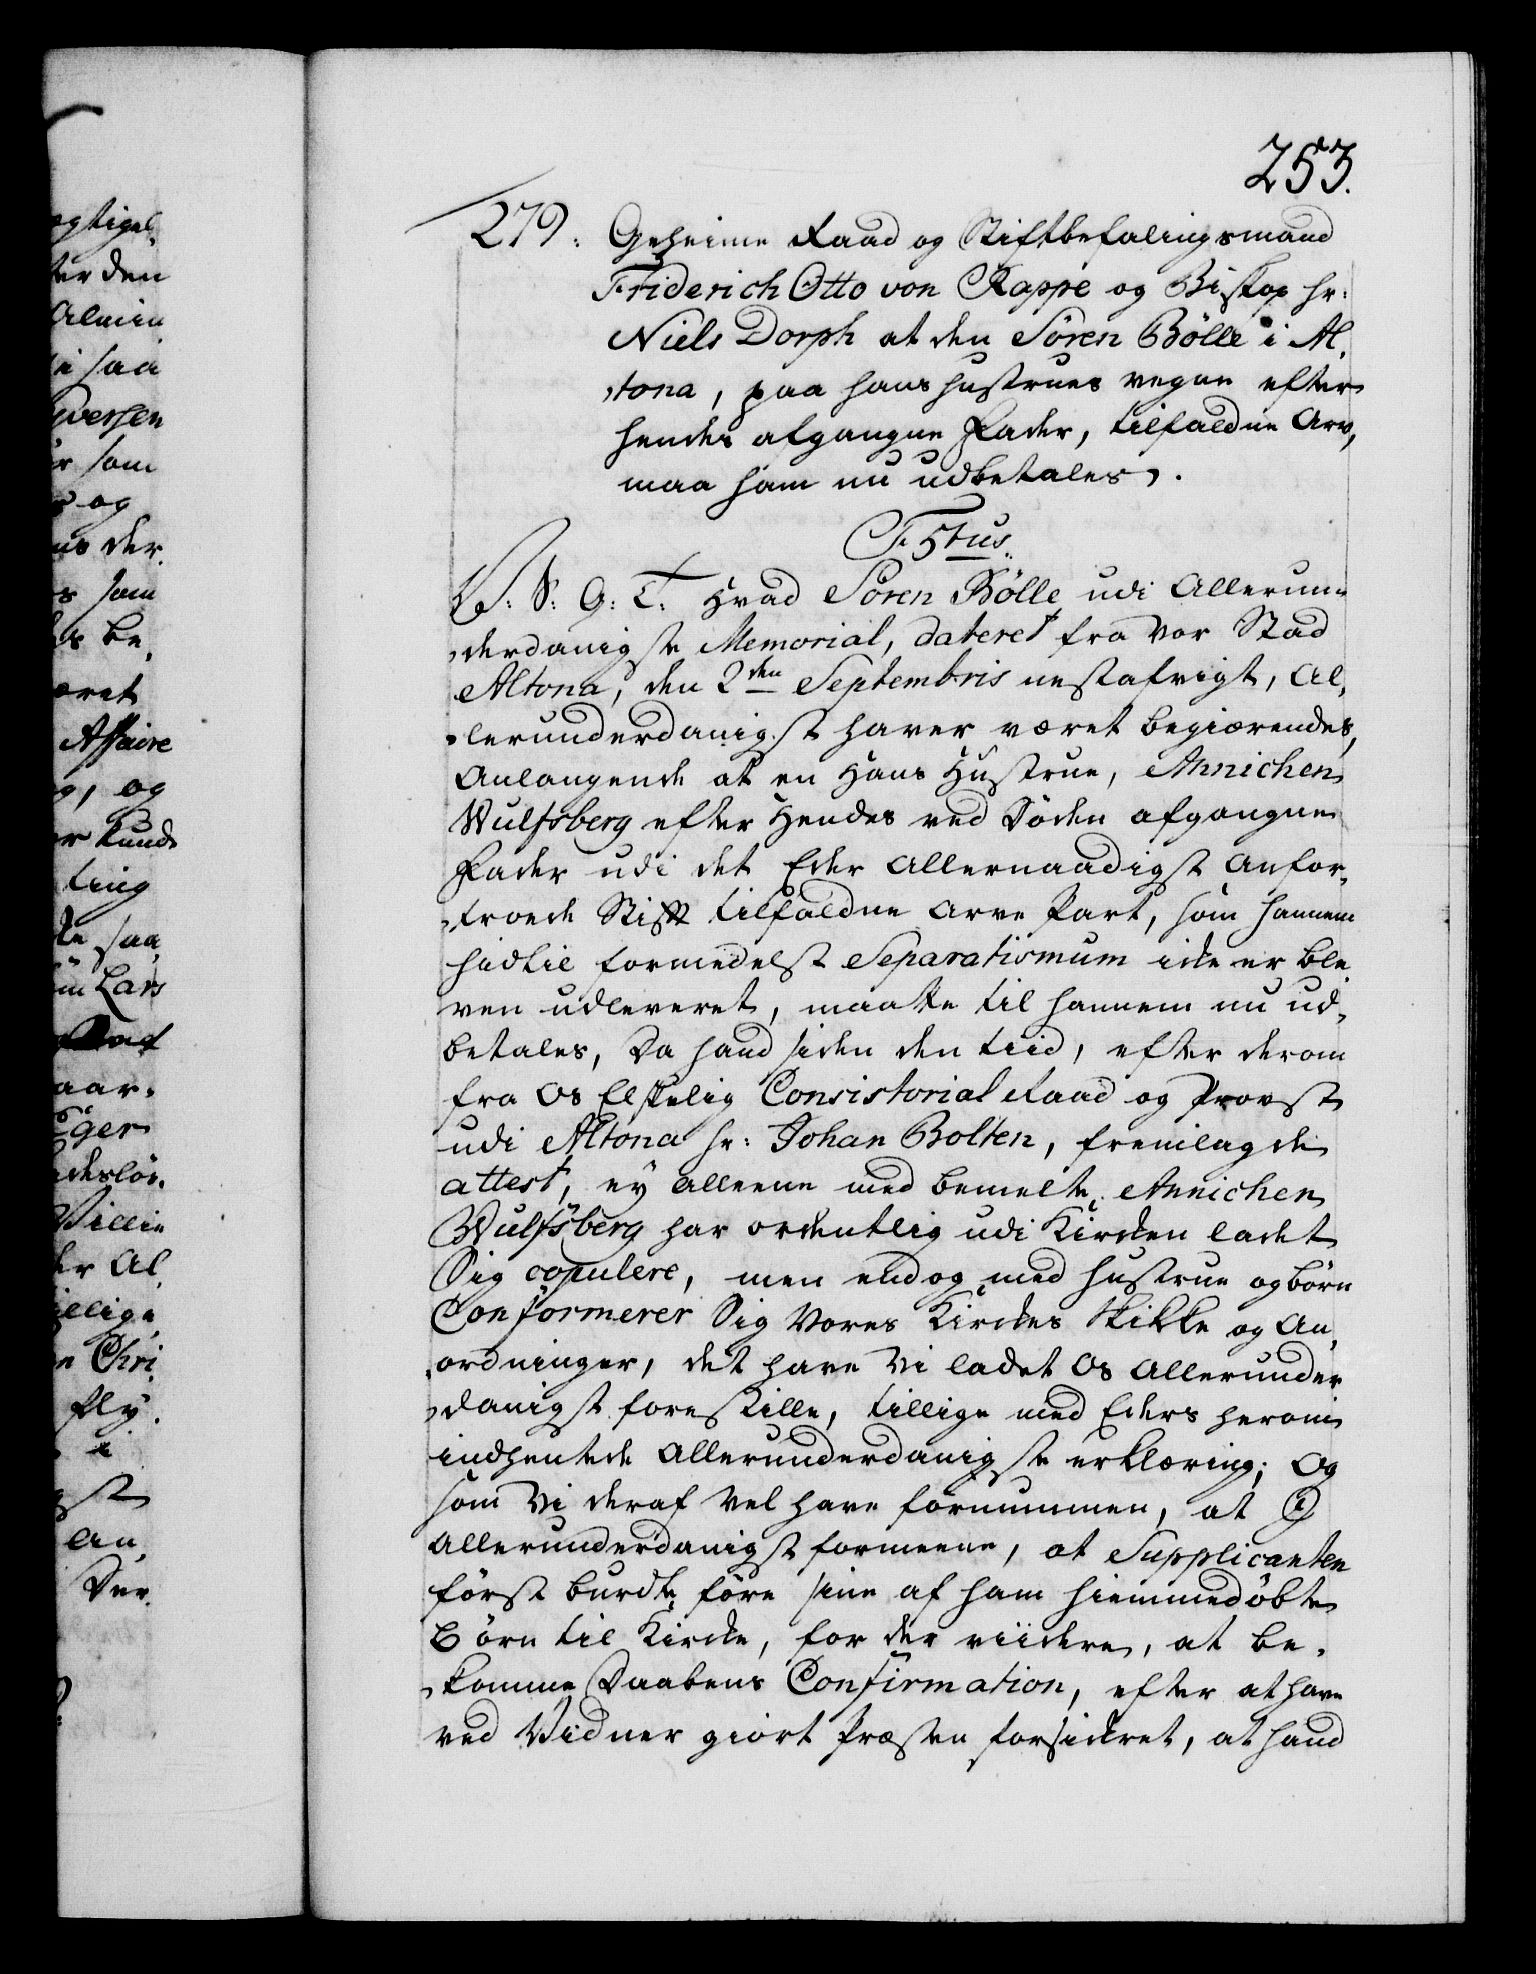 253.
279. Geheime Raad og Stiftbefalingsmand
Friderich Otto von Rappe og Biskop hr:
Niels Dorph at den Sören Bölle i Al,
,tona, paa hans hustrues vegne efter
hendes afgangne Fader, tilfaldne Arv,
maa ham nu udbetales.
F. 5tus.
V. S. G. T. Hvad Sören Bölle udi Allerun,
,derdanigste Memorial, dateret fra vor Stad
Altona, den 2den Septembris nestafvigt, Al,
,lerunderdanigst haver været begiærendes,
Anlangende at en Hans Hustrue, Annichen
Wulfsberg efter Hendes ved Döden afgangne
Fader udi det Eder Allernaadigst Anfor,
,troede Stift tilfaldne Arve Part, som hannem
hidtil formedelst Separatismum icke er ble
ven udleveret, maatte til hannem nu ud,
betales, Da hand siden den tiid, efter derom
fra Os Elskelig Consistorial Raad og Provst
udi Altona hr: Johan Bolten, fremlagde
attest, ey alleene med bemelte Annichen
Wulfsberg har ordentlig udi Kircken ladet
Sig copulere, men endog med hustrue og börn
Conformerer Sig Vores Kirckes Skikke og An,
,ordninger, det have Vi ladet Os Allerunder
,danigst forestille, tillige med Eders herom
indhentede Allerunderdanigste erklæring; Og
som Vi deraf Vel have fornummen, at I
Allerunderdanigst formeene, at Supplicanten
först burdte före sine af ham hiemmedöbte
Börn til Kircke, for der viidere, at be,
,komme Daabens Confirmation, efter at have
ved Vidner giört Præsten forsickret, at hand
ogtigel,
ter den
Almin
i saa
Iversen
r som
og
ns der.
s som
be,
æret
Affaire
, og
er kund
ting
te saa,
Lars
aar,
ger
deslös.
Villie
der Al,
illige
n Chri,
fly,
gst
An,
Der,